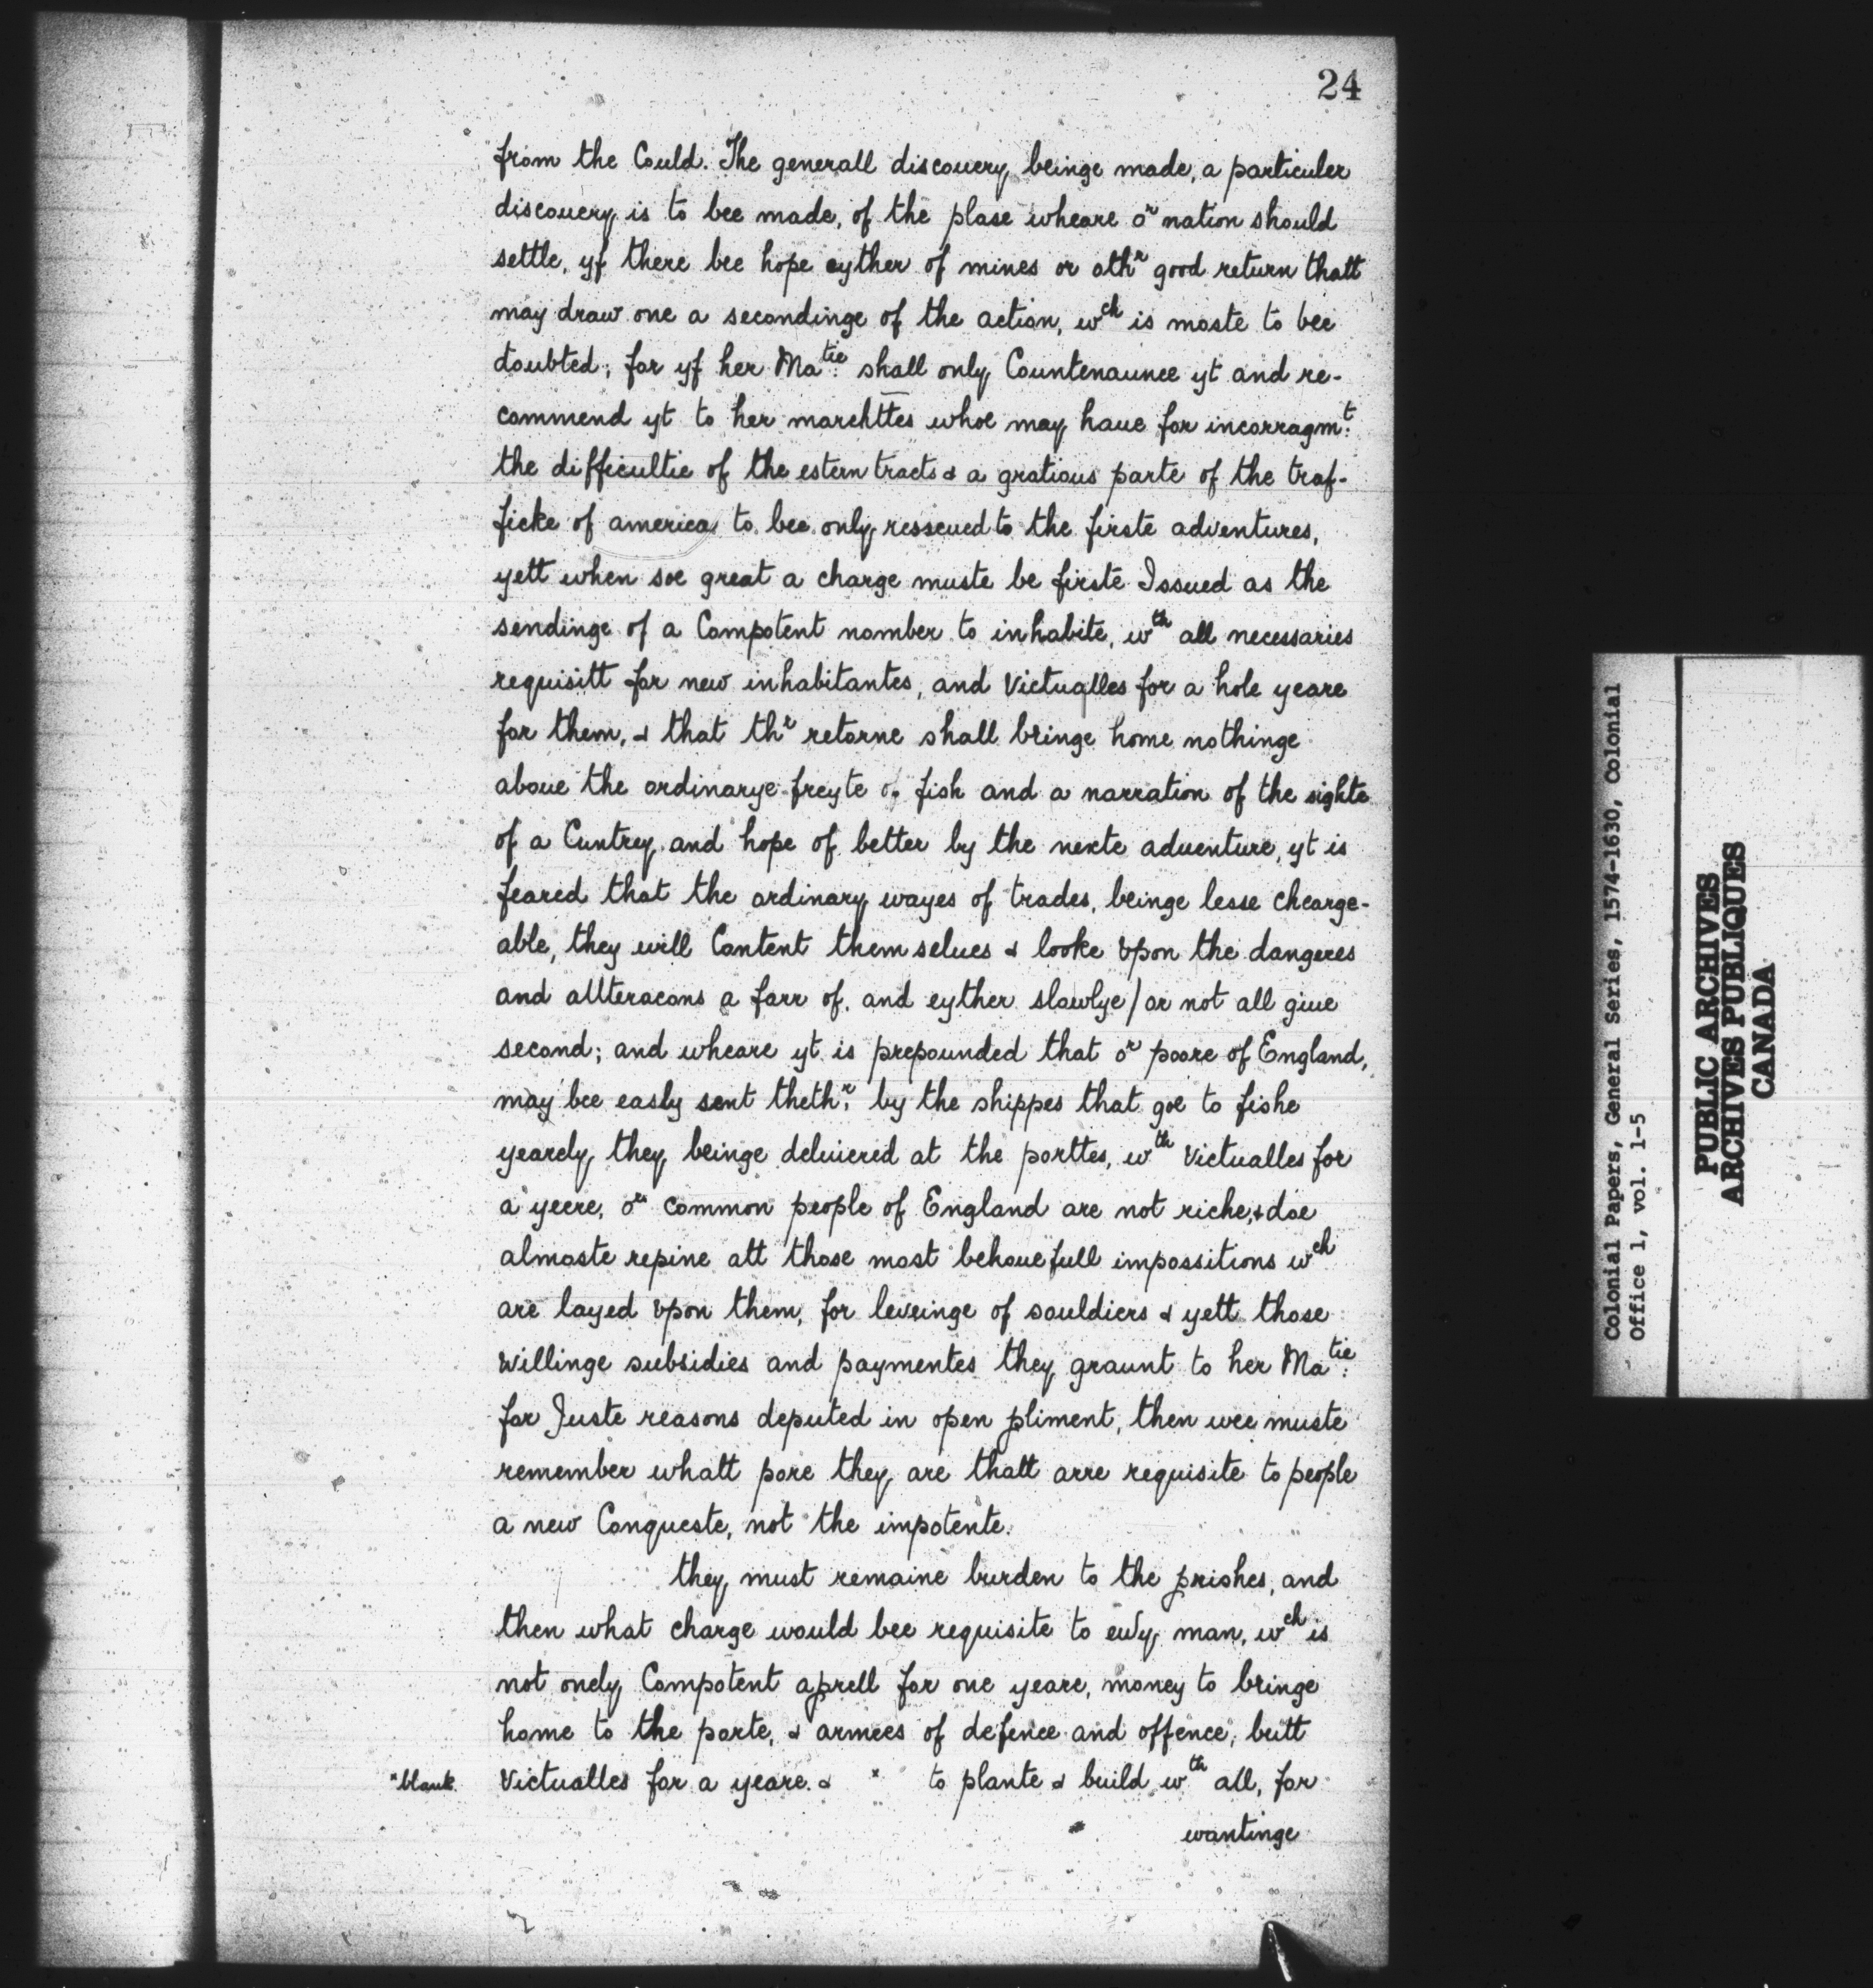 24
from the Could. The generall discouery beinge made, a particuler
discouery is to bee made, of the plase wheare oʳ nation should
settle, yf there bee hope eyther of mines or othʳ good return thatt
may draw one a secondinge of the action, wᶜʰ is moste to bee
doubted; for yf her Maᵗⁱᵉ: shall only Countenaunce yt and re-
commend yt to her marchttes whoe may haue for incorragmᵗ:
the difficultie of the estern tracts & a gratious parte of the traf-
ficke of america to bee only resseued to the firste adventures,
yett when soe great a charge muste be firste Issued as the
sendinge of a Compotent nomber to inhabite, wᵗʰ all necessaries
requisitt for new inhabitantes, and Victualles for a hole yeare
for them, & that thʳ retorne shall bringe home nothinge
aboue the ordinarye freyte of fish and a narration of the sighte
of a Cuntrey and hope of better by the nexte aduenture, yt is
feared that the ordinary wayes of trades, beinge lesse chearge-
able, they will Content them selues & looke vpon the dangeres
and allteracons a farr of, and eyther slowlye / or not all giue
second; and wheare yt is prepounded that oʳ poore of England,
may bee easly sent thethʳ, by the shippes that goe to fishe
yearely, they beinge deliuered at the porttes, wᵗʰ Victualles for
a yeere, oʳ common people of England are not riche, & doe
almoste repine att those most behouefull impossitions wᶜʰ
are layed vpon them, for leveinge of souldiers & yett those
willinge subsidies and paymentes they graunt to her Maᵗⁱᵉ:
for Juste reasons deputed in open pliment, then wee muste
remember whatt pore they are thatt arre requisite to people
a new Conqueste, not the impotente.
they must remaine burden to the prishes, and
then what charge would bee requisite to evʳy man, wᶜʰ is
not onely Compotent aprell for one yeare, money to bringe
home to the porte, & armees of defence and offence, butt
"blank. Victualles for a yeare. & × to plante & build wᵗʰ all, for
wantinge
Colonial Papers, General Series, 1574-1630, Colonial
Office 1, vol. 1-5
PUBLIC ARCHIVES
ARCHIVES PUBLIQUES
CANADA